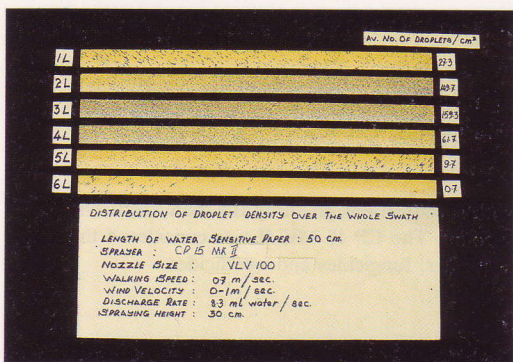 AV. NO. OF DROPLETS/cm²
1L 27·3
2L 149·7
3L 159·3
4L 61·7
5L 9·7
6L 0·7
DISTRIBUTION OF DROPLET DENSITY OVER THE WHOLE SWATH
LENGTH OF WATER SENSITIVE PAPER : 50 cm.
SPRAYER : CP 15 MK II
NOZZLE SIZE : VLV 100
WALKING SPEED : 0·7 m/sec.
WIND VELOCITY : 0-1m/sec.
DISCHARGE RATE : 8·3 ml water/sec.
SPRAYING HEIGHT : 30 cm.